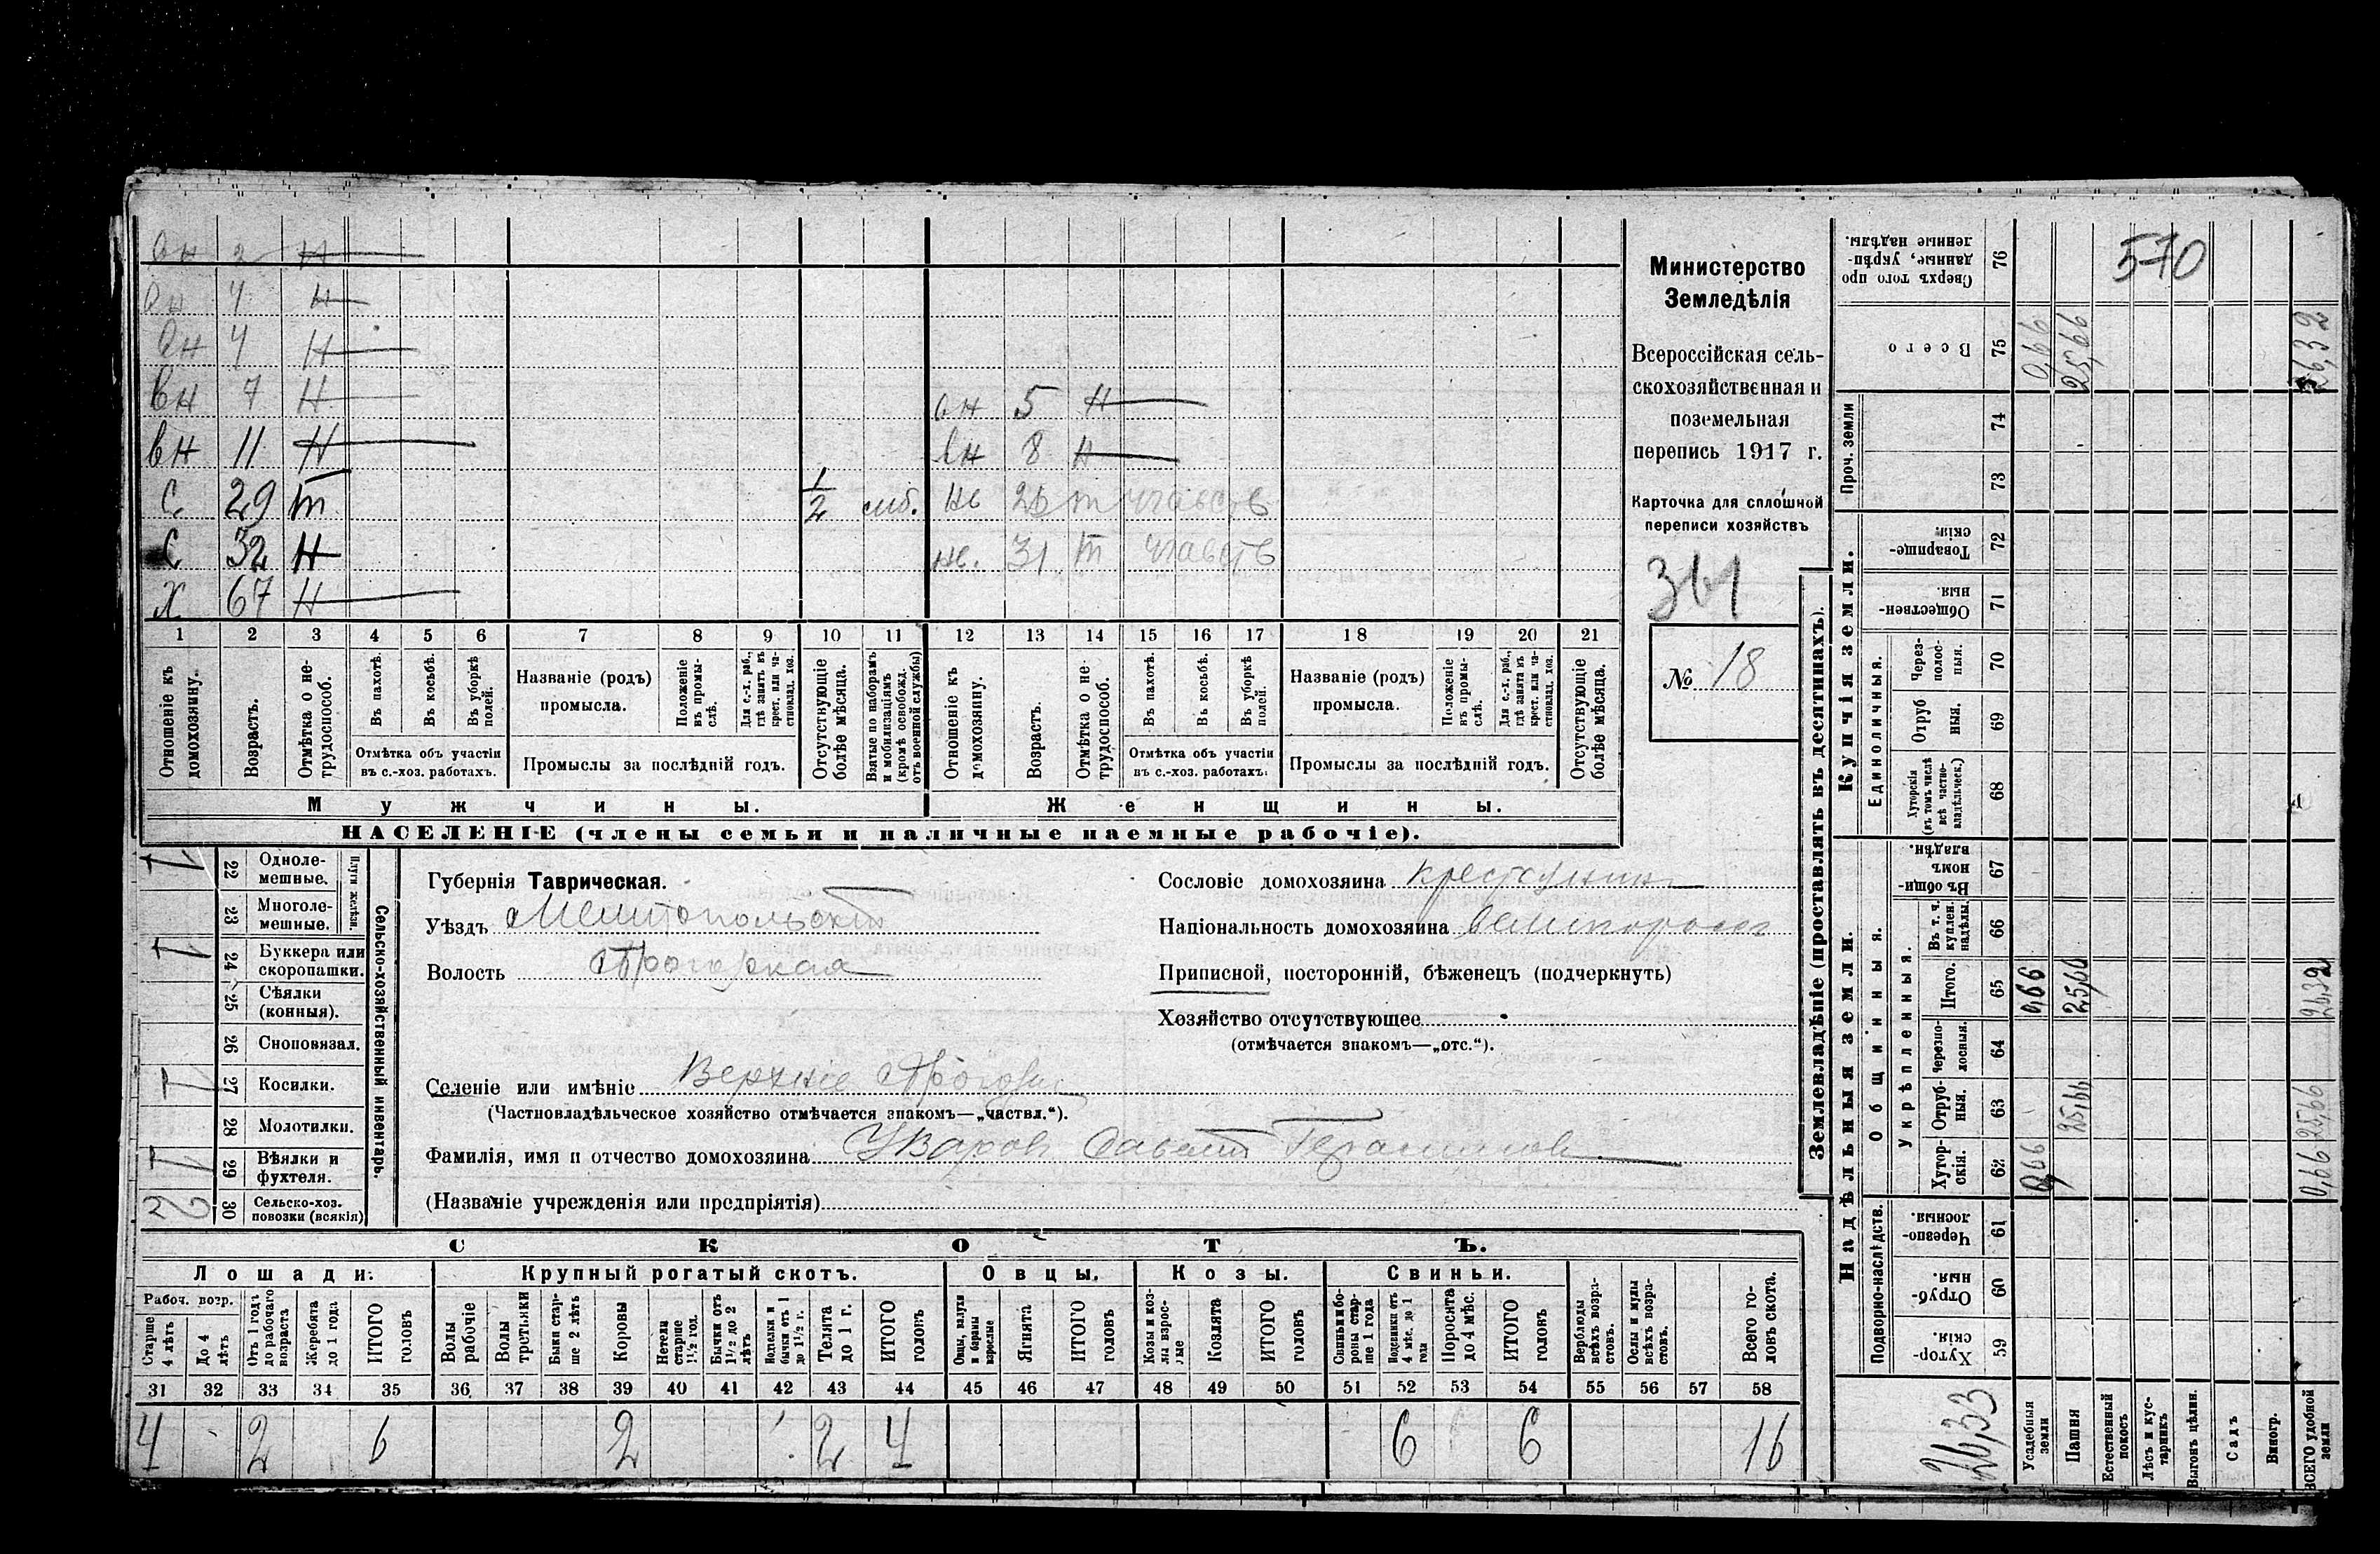 вн 2 н
вн 4 н
вн 4 н
вн 7 н
вн 5 н
вн 11 н
вн 8 н
с. 29 т 1/2 снб. нв 26 т
с 32 н
нв. 31 т
х 67 н
1 2 3 4 5 6 7 8 9 10 11 12 13 14 15 16 17 18 19 20 21
Отношеніе къ домохозяину.
Возрастъ.
Отмѣтка о не-трудоспособ.
Въ пахотѣ.
Въ косьбѣ.
Въ уборкѣ полей.
Отмѣтка объ участіи въ с.-хоз. работахъ.
Названіе (родъ) промысла.
Положеніе въ промы-слѣ.
Для с.-х. раб., гдѣ занятъ въ крест. или ча-стновлад. хоз.
Промыслы за послѣдній годъ.
Отсутствующіе болѣе мѣсяца.
Взятые по наборамъ и мобилизаціямъ (кромѣ освобожд. отъ военной службы)
Отношеніе къ домохозяину.
Возрастъ.
Отмѣтка о не-трудоспособ.
Въ пахотѣ.
Въ косьбѣ.
Въ уборкѣ полей.
Отмѣтка объ участіи въ с.-хоз. работахъ.
Названіе (родъ) промысла.
Положеніе въ промы-слѣ.
Для с.-х. раб., гдѣ занята въ крест. или ча-стновлад. хоз.
Промыслы за послѣдній годъ.
Отсутствующіе болѣе мѣсяца.
Мужчины.
Женщины.
НАСЕЛЕНІЕ (члены семьи и наличные наемные рабочіе).
Министерство
Земледѣлія
Всероссійская сель-
скохозяйственная и
поземельная
перепись 1917 г.
Карточка для сплошной
переписи хозяйствъ
361
№ 18
Сельско-хозяйственный инвентарь.
Плуги желѣзн.
22 Одноле-мешные. 1
23 Многоле-мешные.
24 Буккера или скоропашки. 1
25 Сѣялки (конныя).
26 Сноповязал.
27 Косилки. 1
28 Молотилки.
29 Вѣялки и фухтеля. 1
30 Сельско-хоз. повозки (всякія) 2
Губернія Таврическая.
Уѣздъ Мелитопольскій
Волость
Селеніе или имѣніе Верхніе
(Частновладѣльческое хозяйство отмѣчается знакомъ—„частвл.“).
Фамилія, имя и отчество домохозяина Уваров Савелій Герасимов
(Названіе учрежденія или предпріятія)
Сословіе домохозяина крестьянин
Національность домохозяина великоросс
Приписной, посторонній, бѣженецъ (подчеркнуть)
Хозяйство отсутствующее
(отмѣчается знакомъ—„отс.“).
СКОТЪ.
Лошади. Крупный рогатый скотъ. Овцы. Козы. Свиньи.
Рабоч. возр.
Старше 4 лѣтъ
До 4 лѣтъ
Отъ 1 года до рабочаго возраста
Жеребята до 1 года
ИТОГО головъ
Волы рабочіе
Волы третьяки
Быки стар-ше 2 лѣтъ
Коровы
Нетели старше 1½ год.
Бычки отъ 1½ до 2 лѣтъ
Подтелки и бычки отъ 1 до 1½ г.
Телята до 1 г.
ИТОГО головъ
Овцы, валухи и бараны взрослые
Ягнята
ИТОГО головъ
Козы и коз-лы взрос-лые
Козлята
ИТОГО головъ
Свиньи и бо-ровы стар-ше 1 года
Подсвинки отъ 4 мѣс. до 1 года
Поросята до 4 мѣс.
ИТОГО головъ
Верблюды всѣхъ возра-стовъ.
Ослы и мулы всѣхъ возра-стовъ.
Всего го-ловъ скота.
31 32 33 34 35 36 37 38 39 40 41 42 43 44 45 46 47 48 49 50 51 52 53 54 55 56 57 58
4 2 6 2 2 4 6 6 16
Землевладѣніе (проставлять въ десятинахъ).
Надѣльныя земли.
Купчія земли.
Проч. земли
Подворно-наслѣдств.
Общинныя.
Укрѣпленныя.
Единоличныя.
Сверхъ того про данные, укрѣп-ленные надѣлы. 76
570
Всего 75 0,66 25,66 26,32
74
73
Товарище-скія. 72
Обществен-ныя. 71
Через-полос-ныя. 70
Отруб ныя. 69
Хуторскія (въ томъ числѣ всѣ частно-владѣльческ.) 68
Въ общи-номъ владѣн. 67
Въ т. ч. куплен. надѣлы. 66
Итого. 65 0,66 25,66 26,32
Черезпо-лосныя. 64
Отруб-ныя. 63 25,66 25,66
Хутор-скія. 62 0,66 0,66
Черезпо-лосныя. 61
Отруб-ныя. 60
Хутор-скія. 59
26,33
Усадебныя земли
Пашня
Естественный покосъ
Лѣсъ и кус-тарникъ
Выгонъ цѣлин.
Садъ
Виногр.
ВСЕГО удобной земли